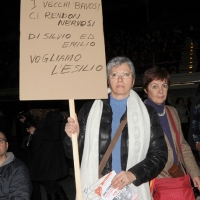 I VECCHI BAVOSI
CI RENDON NERVOSI
DI SILVIO ED
EMILIO
VOGLIAMO
L'ESILIO